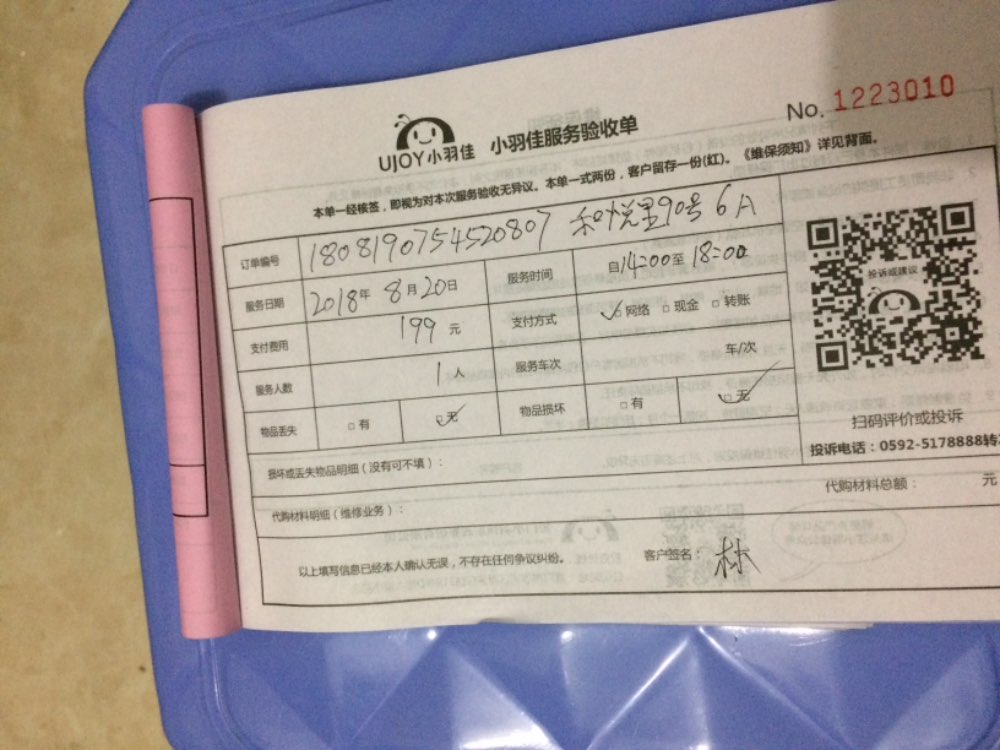 No. 1223010
UJOY小羽佳 小羽佳服务验收单
本单一经核签，即视为对本次服务验收无异议。本单一式两份，客户留存一份(红)。《维保须知》详见背面。
订单编号 1808190754520807 和悦里90号6A
服务日期 2018年8月20日 服务时间 自14:00至18:00
支付费用 199元 支付方式 网络 现金 转账
服务人数 1人 服务车次 车/次
物品丢失 有 无 物品损坏 有 无
投诉或建议
扫码评价或投诉
投诉电话：0592-5178888转
损坏或丢失物品明细（没有可不填）：
代购材料明细（维修业务）： 代购材料总额： 元
以上填写信息已经本人确认无误，不存在任何争议纠纷。 客户签名： 林